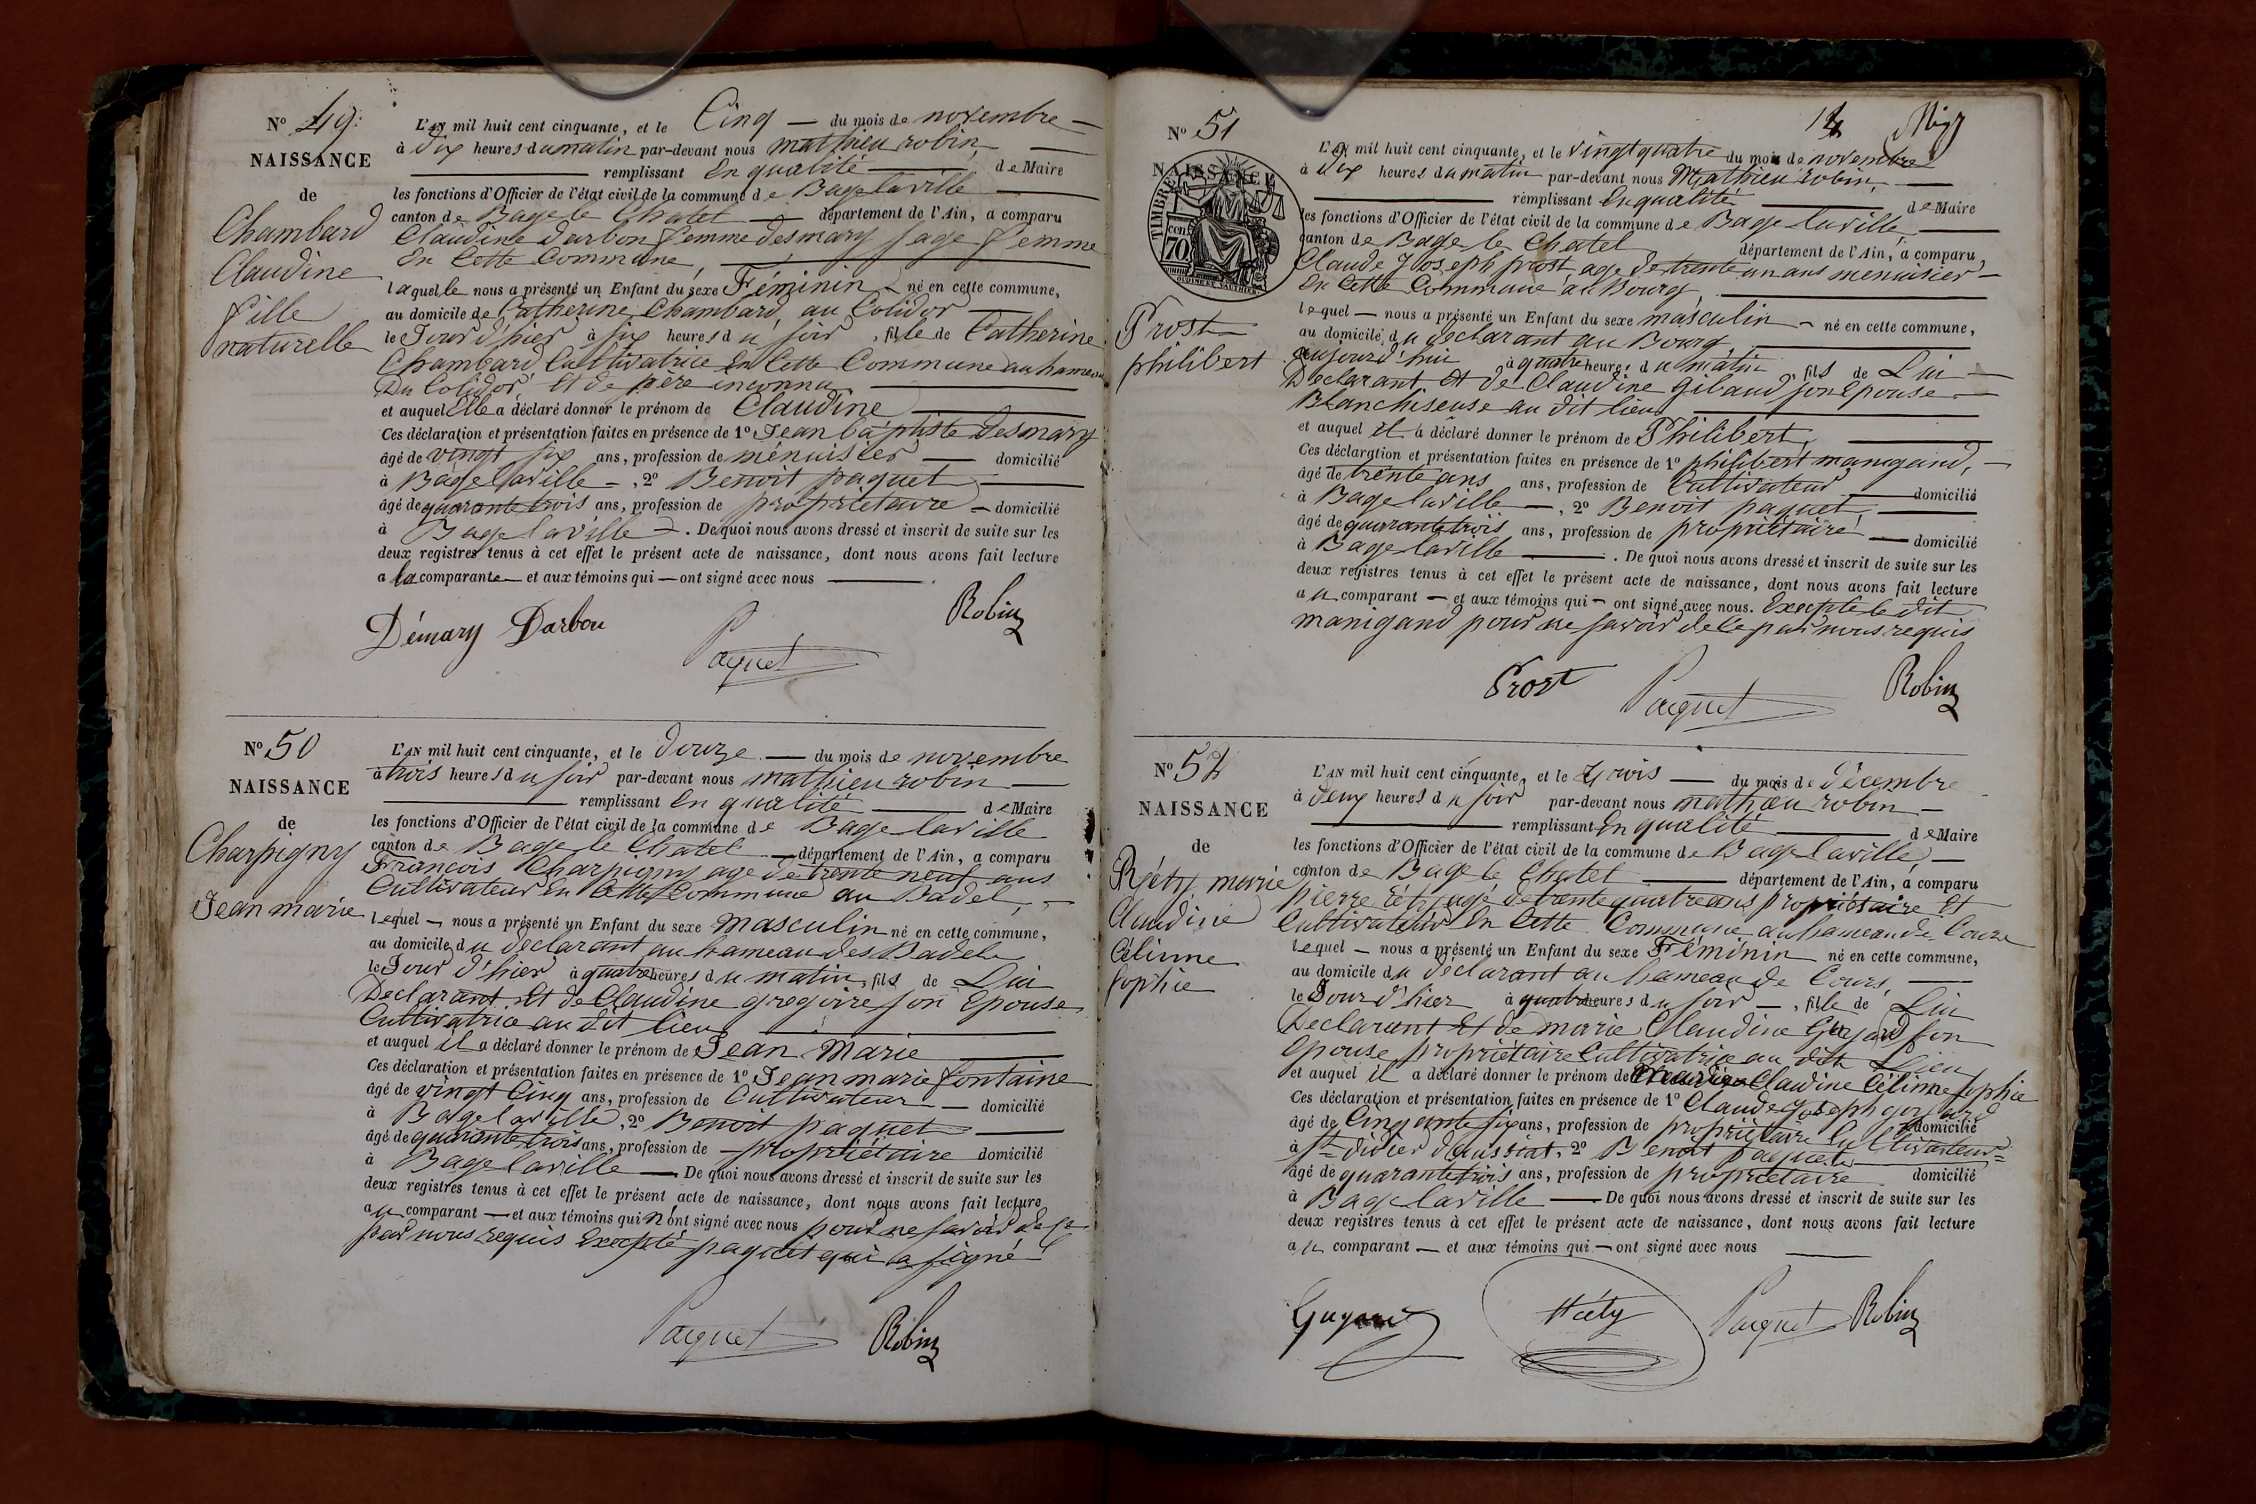 Nº 49.
NAISSANCE
de
Chambard
Claudine
fille
naturelle
L'AN mil huit cent cinquante, et le Cinq — du mois de novembre —
à dix heures du matin par-devant nous mathieu robin, —
— remplissant En qualité — de Maire
les fonctions d'Officier de l'état civil de la commune de Bage laville —
canton de Bage le Chatel — département de l'Ain, a comparu
Claudine Darbon femme desmary sage femme
En Cette Commune, —
laquelle nous a présenté un Enfant du sexe Féminin — né en cette commune,
au domicile de Catherine Chambard, au Colidor —
le Jour d'hier à six heures du soir, fille de Catherine
Chambard Cultivatrice En Cette Commune au hameau
Du Colidor, Et de père inconnu —
et auquel Elle a déclaré donner le prénom de Claudine —
Ces déclaration et présentation faites en présence de 1º Jean baptiste desmary
âgé de vingt six ans, profession de menuisier — domicilié
à Bage laville —, 2º Benoit paquet —
âgé de quarante trois ans, profession de propriétaire — domicilié
à Bage laville —. De quoi nous avons dressé et inscrit de suite sur les
deux registres tenus à cet effet le présent acte de naissance, dont nous avons fait lecture
a la comparante — et aux témoins qui — ont signé avec nous —.
Démary Darbon
Paquet
Robin
Nº 50
NAISSANCE
de
Charpigny
Jean marie
L'AN mil huit cent cinquante, et le douze — du mois de novembre
à trois heures du soir par-devant nous mathieu robin —
— remplissant En qualité — de Maire
les fonctions d'Officier de l'état civil de la commune de Bage laville
canton de Bage le Chatel — département de l'Ain, a comparu
François Charpigny age de trente neuf ans
Cultivateur En Cette Commune au Badel, —
lequel — nous a présenté un Enfant du sexe masculin né en cette commune,
au domicile du declarant au hameau des Badels
le Jour d'hier à quatre heures du matin, fils de Lui
Declarant Et de Claudine gregoire son Epouse
Cultivatrice au dit lieu —
et auquel il a déclaré donner le prénom de Jean Marie —
Ces déclaration et présentation faites en présence de 1º Jean marie fontaine
âgé de vingt Cinq ans, profession de Cultivateur — domicilié
à Bage laville, 2º Benoit paquet —
âgé de quarante trois ans, profession de propriétaire domicilié
à Bage laville —. De quoi nous avons dressé et inscrit de suite sur les
deux registres tenus à cet effet le présent acte de naissance, dont nous avons fait lecture
au comparant — et aux témoins qui n'ont signé avec nous pour ne savoir de ce
par nous requis Excepté paquet qui a signé
Paquet
Robin
14
Nº 51
NAISSANCE
TIMBRE
cen
70
Prost
philibert
L'AN mil huit cent cinquante, et le vingt quatre du mois de novembre
à dix heures du matin par-devant nous Mathieu robin, —
— remplissant En qualité — de Maire
les fonctions d'Officier de l'état civil de la commune de Bage laville, —
canton de Bage le Chatel département de l'Ain, a comparu,
Claude Joseph prost, age de trente un ans menuisier —
En Cette Commune au Bourg, —
lequel — nous a présenté un Enfant du sexe masculin — né en cette commune,
au domicile du declarant au Bourg, —
aujourd'hui à quatre heures du matin, fils de Lui —
Declarant, Et de Claudine gibaud son Epouse —
Blanchiseuse au dit lieu —
et auquel il a déclaré donner le prénom de Philibert, —
Ces déclaration et présentation faites en présence de 1º philibert manigand, —
âgé de trente ans ans, profession de Cultivateur — domicilié
à Bage laville —, 2º Benoit paquet —
âgé de quarante trois ans, profession de propriétaire — domicilié
à Bage laville —. De quoi nous avons dressé et inscrit de suite sur les
deux registres tenus à cet effet le présent acte de naissance, dont nous avons fait lecture
au comparant — et aux témoins qui — ont signé avec nous. Excepté le dit
manigand pour ne savoir de ce par nous requis
Prost
Paquet
Robin
Nº 52
NAISSANCE
de
Réty marie
Claudine
Célinne
sophie
L'AN mil huit cent cinquante, et le trois — du mois de décembre
à deux heures du soir par-devant nous mathieu robin —
— remplissant En qualité — de Maire
les fonctions d'Officier de l'état civil de la commune de Bage laville —
canton de Bage le Chatel — département de l'Ain, a comparu
pierre réty agé de trente quatre ans propriétaire Et
Cultivateur En Cette Commune au hameau de Cours
lequel — nous a présenté un Enfant du sexe Féminin né en cette commune,
au domicile du déclarant au hameau de Cours, —
le Jour d'hier à quatre heures du soir —, fille de Lui
Declarant Et de marie Claudine Guyard son
Epouse, propriétaire Cultivatrice au dit Lieu
et auquel il a déclaré donner le prénom de Claudine Célinne sophie
Ces déclaration et présentation faites en présence de 1º Claude Joseph goyard
âgé de Cinquante six ans, profession de propriétaire Cultivateur domicilié
à St didier daussiat, 2º Benoit paquet —
âgé de quarante trois ans, profession de propriétaire domicilié
à Bage laville —. De quoi nous avons dressé et inscrit de suite sur les
deux registres tenus à cet effet le présent acte de naissance, dont nous avons fait lecture
au comparant — et aux témoins qui — ont signé avec nous —
Guyard
Réty
Paquet
Robin